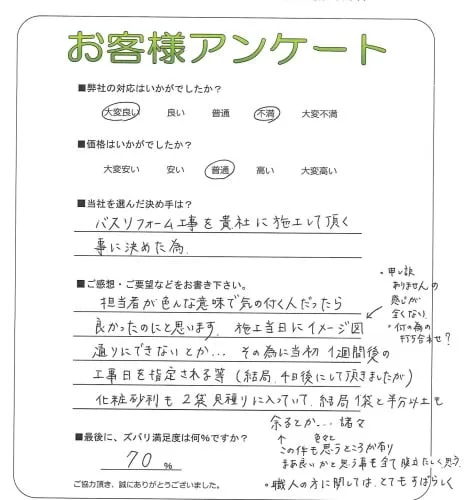 お客様アンケート
■弊社の対応はいかがでしたか？
大変良い 良い 普通 不満 大変不満
■価格はいかがでしたか？
大変安い 安い 普通 高い 大変高い
■当社を選んだ決め手は？
バスリフォーム工事を貴社に施工して頂く
事に決めた為.
■ご感想・ご要望などをお書き下さい。
担当者が色んな意味で気の付く人だったら
良かったのにと思います. 施工当日にイメージ図
通りにできないとか… その為に当初1週間後の
工事日を指定される等(結局、4日後にして頂きましたが)
化粧砂利も2袋見積りに入っていて、結局1袋と半分以上も
余るとか… 諸々
・申し訳
ありませんの
感じが
全くない.
・何の為の
打ち合わせ？
↑ 色々と
この件も思うところが有り
まあ良いかと思う事も全て腹立たしく思う.
・職人の方に関しては、とてもすばらしく
■最後に、ズバリ満足度は何%ですか？
70 %
ご協力頂き、誠にありがとうございました。